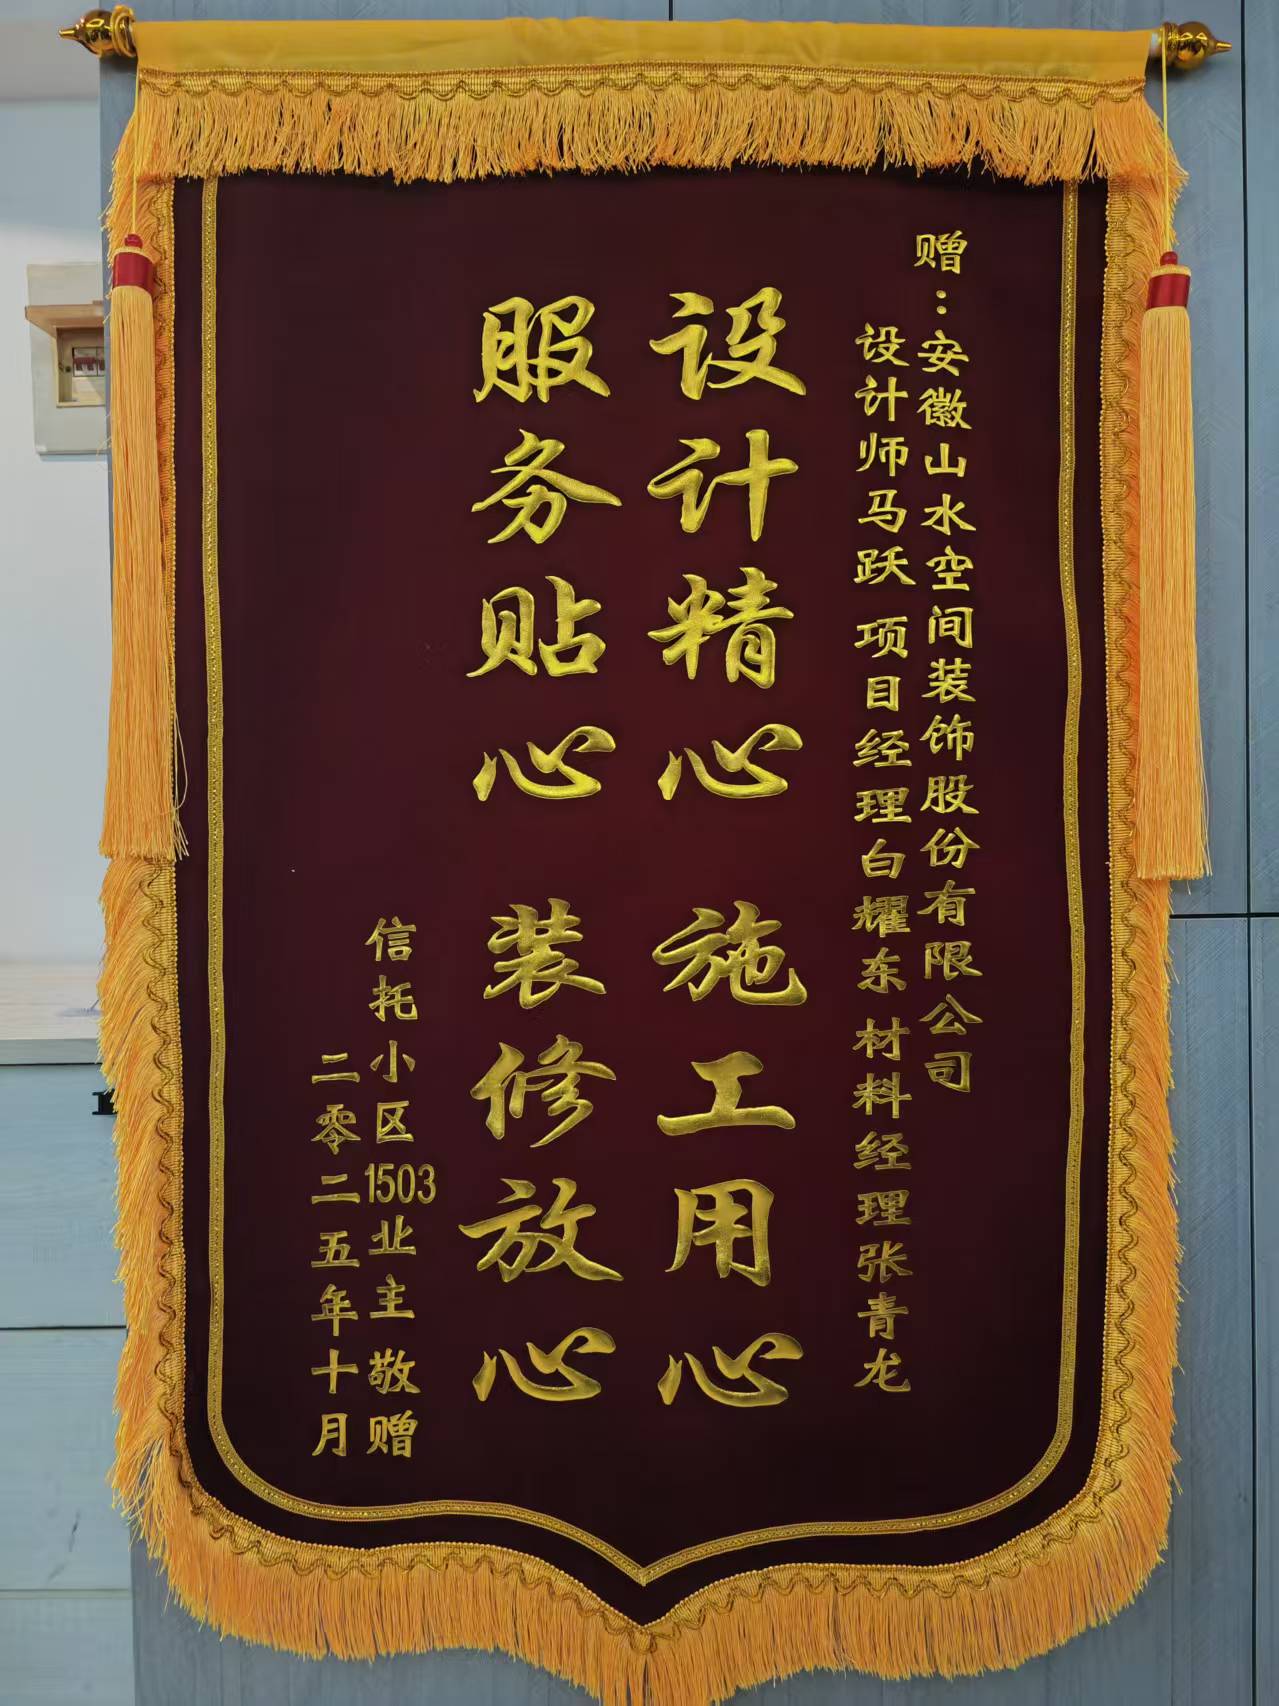 赠：安徽山水空间装饰股份有限公司
设计师马跃 项目经理白耀东 材料经理张青龙
设计精心 施工用心
服务贴心 装修放心
信托小区1503业主敬赠
二零二五年十月